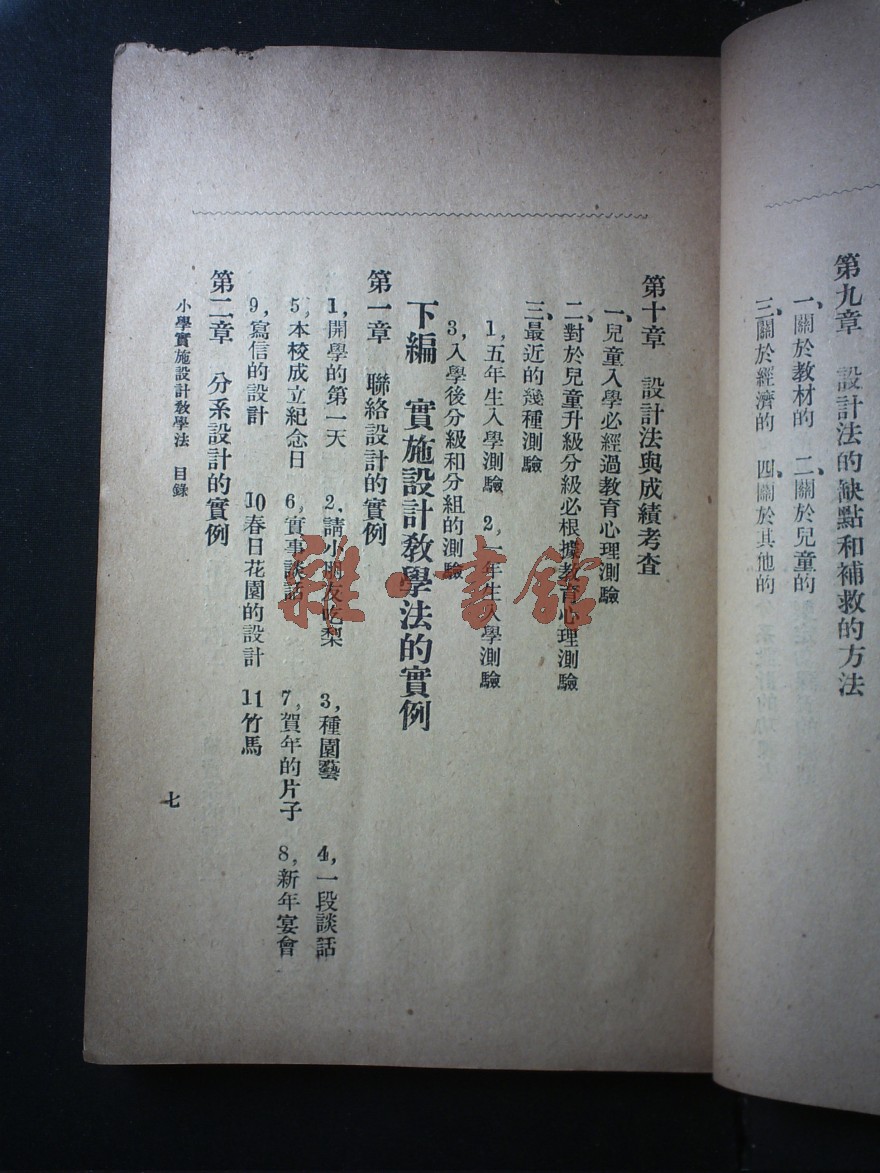 第九章　設計法的缺點和補救的方法
一、關於教材的　二、關於兒童的
三、關於經濟的　四、關於其他的
第十章　設計法與成績考查
一、兒童入學必經過教育心理測驗
二、對於兒童升級分級必根據教育心理測驗
三、最近的幾種測驗
1,五年生入學測驗　2,一年生入學測驗
3,入學後分級和分組的測驗
下編　實施設計教學法的實例
第一章　聯絡設計的實例
1,開學的第一天　2、請小朋友吃梨　3,種園藝　4,一段談話
5,本校成立紀念日　6,實事談話　7,賀年的片子　8,新年宴會
9,寫信的設計　10春日花園的設計　11竹馬
第二章　分系設計的實例
小學實施設計教學法　目錄
七
雜·書館